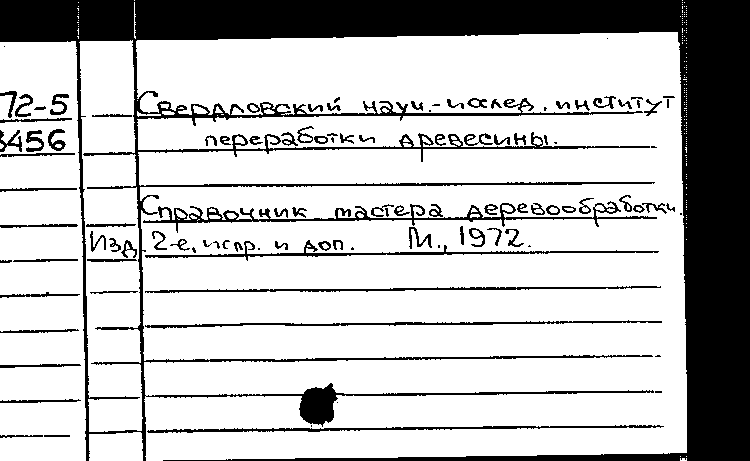 72-5 Свердловский науч.-исслед. институт
3456 переработки древесины.
Справочник мастера деревообработки.
Изд. 2-е, испр. и доп. М., 1972.